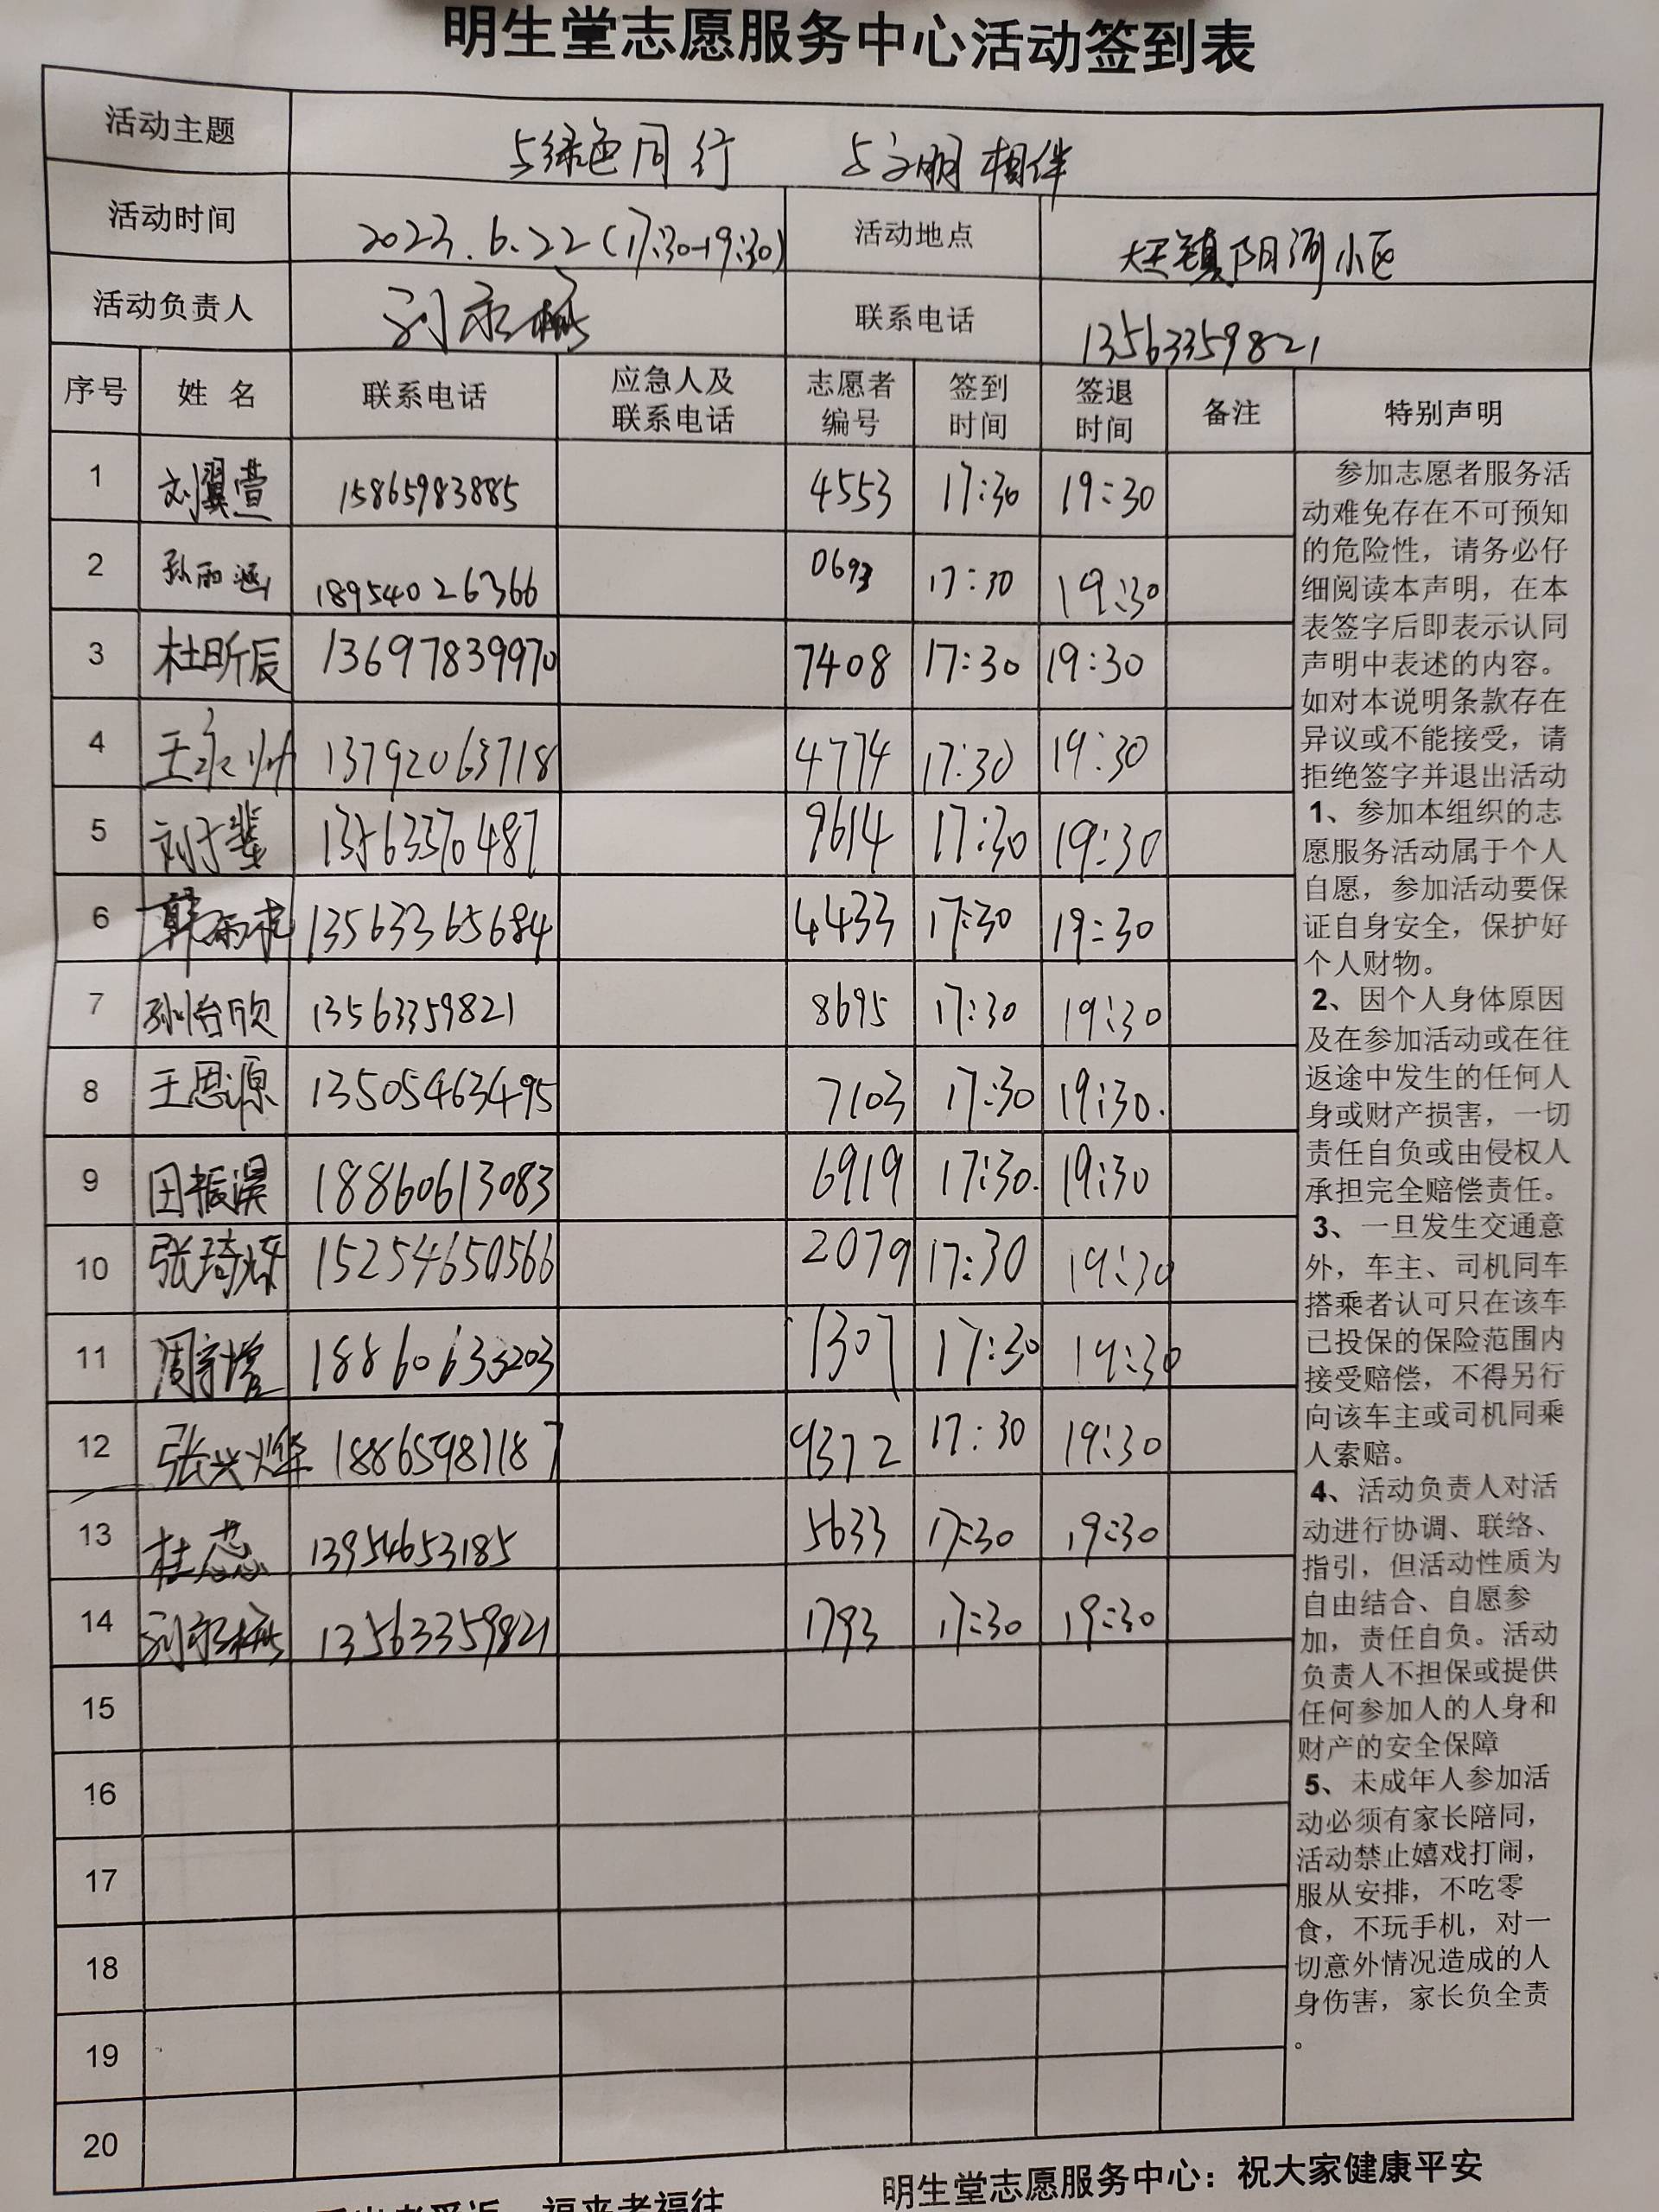 明生堂志愿服务中心活动签到表
活动主题 与绿色同行 与文明相伴
活动时间 2023.6.22(17:30-19:30) 活动地点 大王镇阳河小区
活动负责人 刘永梅 联系电话 13563359821
序号 姓名 联系电话 应急人及联系电话 志愿者编号 签到时间 签退时间 备注 特别声明
1 刘翼萱 15865983885 4553 17:30 19:30
2 孙雨涵 18954026366 0693 17:30 19:30
3 杜昕辰 13697839970 7408 17:30 19:30
4 王永帅 13792063718 4774 17:30 19:30
5 刘子斐 13563370487 9614 17:30 19:30
6 郭雨 13563365684 4433 17:30 19:30
7 孙怡欣 13563359821 8695 17:30 19:30
8 王思源 13505463495 7103 17:30 19:30.
9 田振淏 18860613083 6919 17:30. 19:30
10 张琦烁 15254650566 2079 17:30 19:30
11 周宇增 18860633203 1307 17:30 19:30
12 张兴烨 18865981187 9372 17:30 19:30
13 杜蕊 13954653185 5633 17:30 19:30
14 刘永梅 13563359821 1793 17:30 19:30
15
16
17
18
19
20
参加志愿者服务活
动难免存在不可预知
的危险性，请务必仔
细阅读本声明，在本
表签字后即表示认同
声明中表述的内容。
如对本说明条款存在
异议或不能接受，请
拒绝签字并退出活动
1、参加本组织的志
愿服务活动属于个人
自愿，参加活动要保
证自身安全，保护好
个人财物。
2、因个人身体原因
及在参加活动或在往
返途中发生的任何人
身或财产损害，一切
责任自负或由侵权人
承担完全赔偿责任。
3、一旦发生交通意
外，车主、司机同车
搭乘者认可只在该车
已投保的保险范围内
接受赔偿，不得另行
向该车主或司机同乘
人索赔。
4、活动负责人对活
动进行协调、联络、
指引，但活动性质为
自由结合、自愿参
加，责任自负。活动
负责人不担保或提供
任何参加人的人身和
财产的安全保障
5、未成年人参加活
动必须有家长陪同，
活动禁止嬉戏打闹，
服从安排，不吃零
食，不玩手机，对一
切意外情况造成的人
身伤害，家长负全责
。
明生堂志愿服务中心：祝大家健康平安
福来者福往